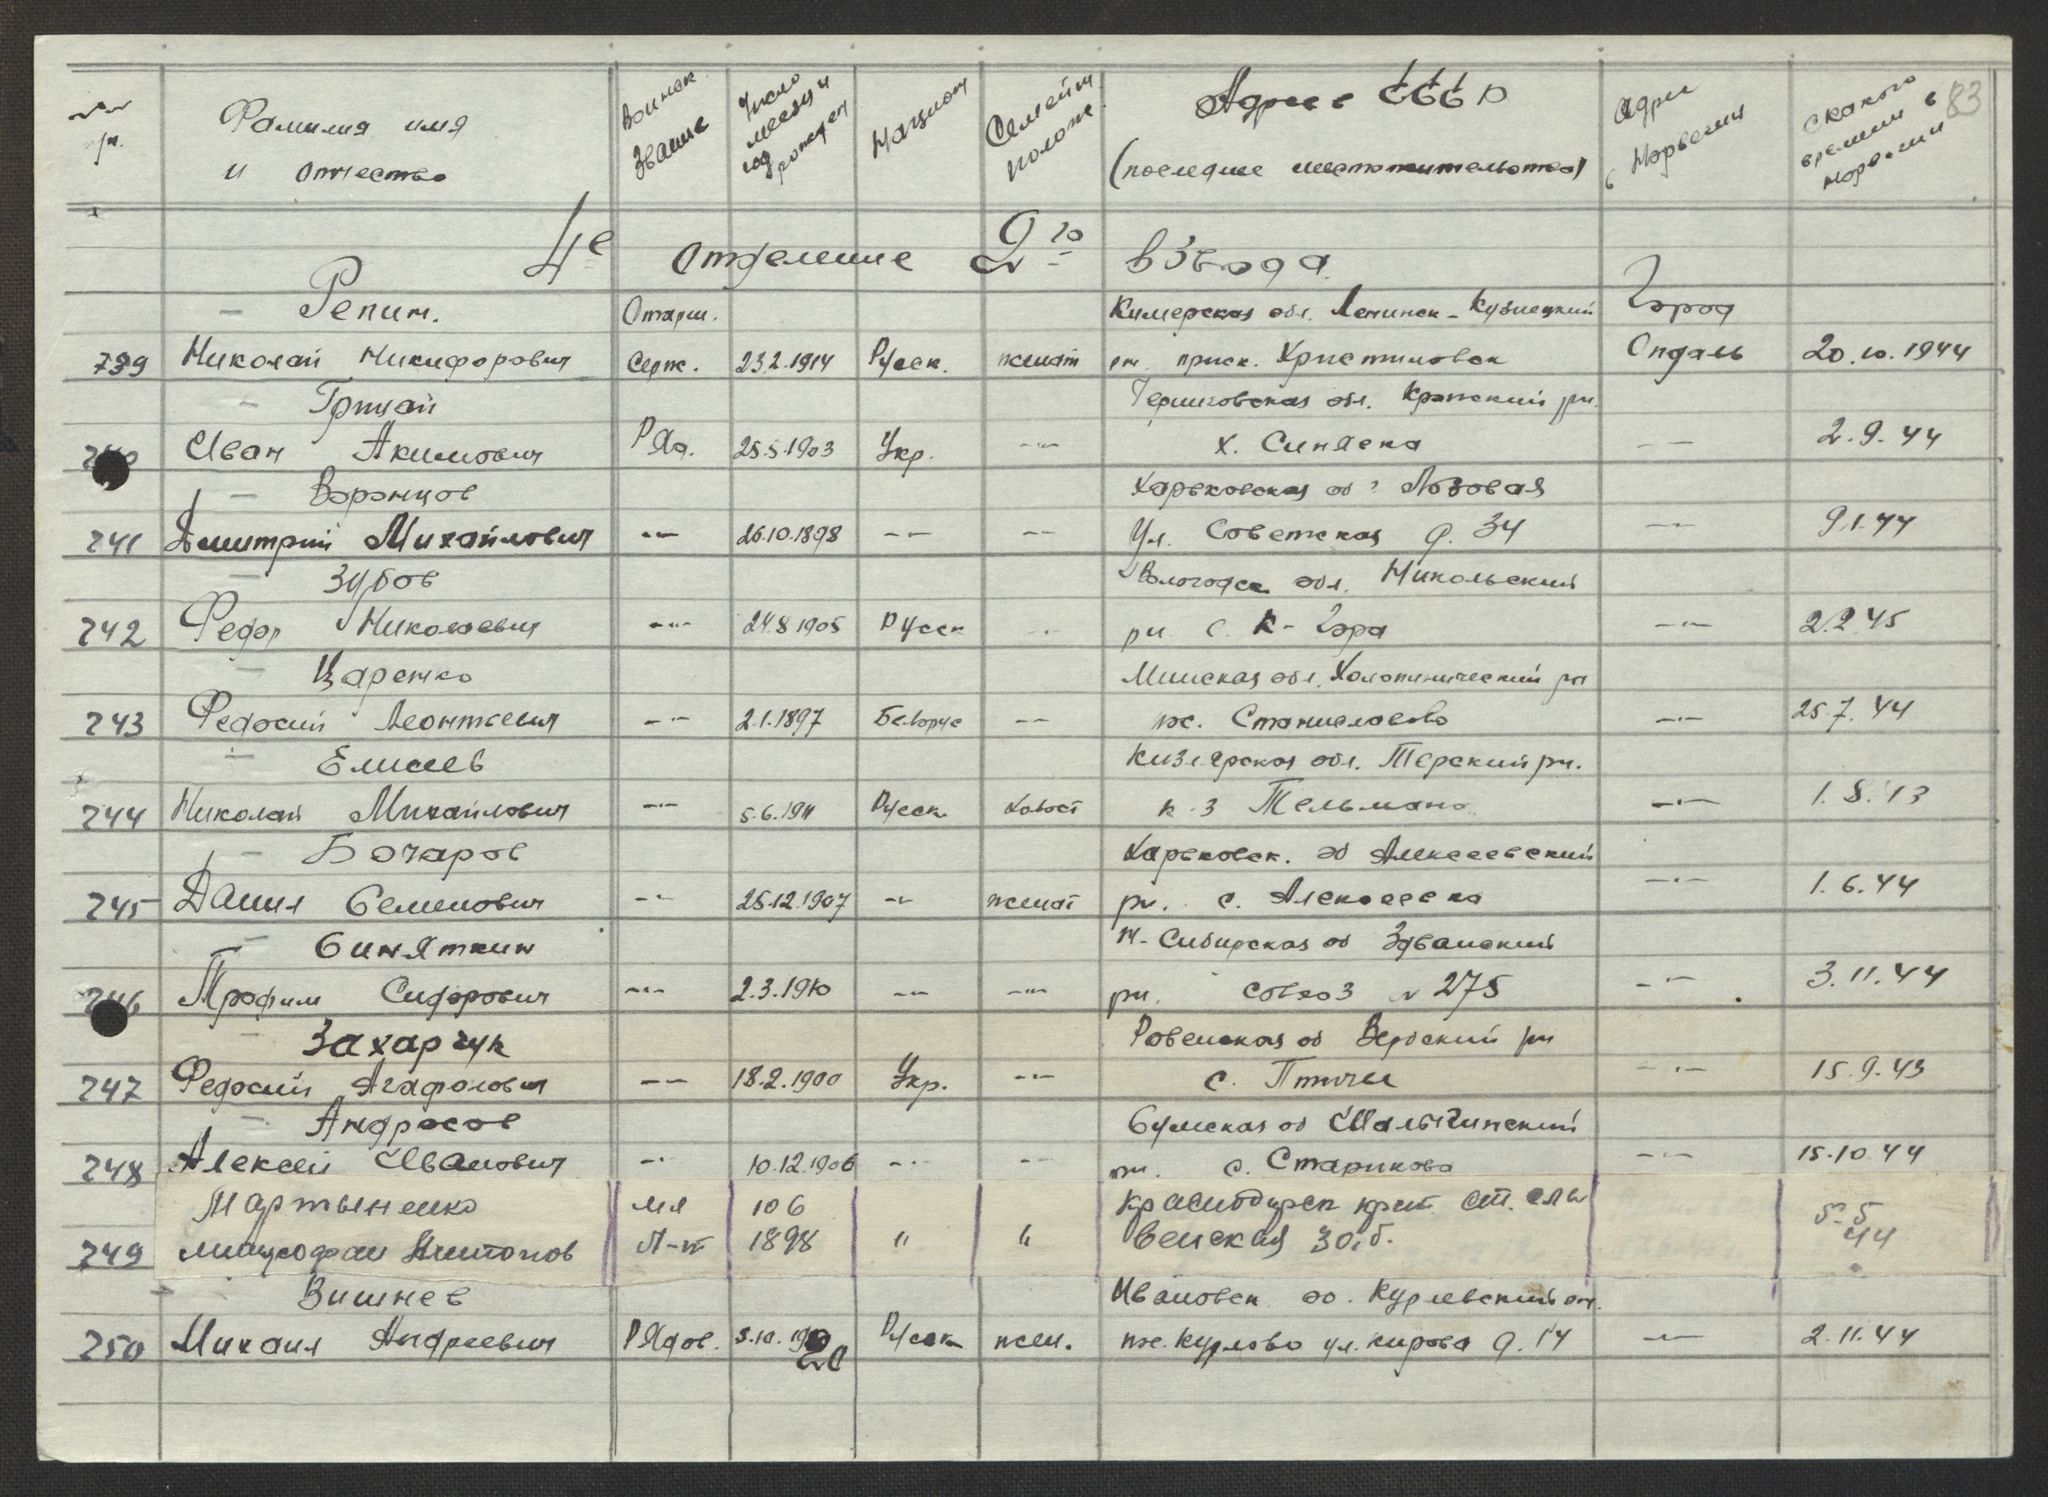 83
Фамилия имя и отчество | Воинск. Звание | Число месяц и год рожден | Национ | Семейн полож. | Адрес СССР (последнее местожительство) | Адрес в Норвегии | С какого времени в Норвегии
4е Отделение 2го взвода
Репин. | Старш. | Кимерская обл. Ленинск-Кузнецкий | Город
739 Николай Никифорович | Серж. | 23.2.1914 | Русск. | женат | рн. приск. Христиновск | Опдаль | 20.10.1944
Грицай | Черниговская обл. рн.
240 Иван Акимович | Ряд. | 25.5.1903 | Укр. | -"- | х. Синявка | -"- | 2.9.44
Воронцов | Харьковская об Лозовая
241 Дмитрий Михайлович | -"- | 26.10.1898 | -"- | -"- | Ул. Советская д. 34 | -"- | 9.1.44
Зубов | Вологодск обл. Никольский
242 Федор Николаевич | -"- | 24.8.1905 | Русск | -"- | рн с. К-Гора | -"- | 2.2.45
Царенко | Минская обл. Холопинический рн
243 Федосий Леонтьевич | -"- | 2.1.1897 | Белорус | -"- | ж. Станиславово | -"- | 25.7.44
Елисеев | Кизлярская обл. Терский рн.
244 Николай Михайлович | -"- | 5.6.1911 | Русск | Холост | к-з Тельмана | -"- | 1.8.43
Бочаров | Харьковск. об Алексеевский
245 Данил Семенович | -"- | 25.12.1907 | -"- | женат | рн. с. Алексеевка | -"- | 1.6.44
Синяткин | Н-Сибирская об Здванский
246 Трофим Сидорович | -"- | 2.3.1910 | -"- | -"- | рн. совхоз № 275 | -"- | 3.11.44
Захарчук | Ровенская об Вербский рн
247 Федосий Агафонович | -"- | 18.2.1900 | Укр. | -"- | с. Птичье | -"- | 15.9.43
Андросов | Сумская об Шалыгинский
248 Алексей Иванович | -"- | 10.12.1906 | -"- | -"- | рн. с. Стариково | -"- | 15.10.44
Мартыненко | мл | 106 | Краснодарск край. ст. сла | 5-5
249 Антонов | Л-т | 1898 | " | " | венская 30.б. | 44
Вишнев | Ивановск об. Курловский рн.
250 Михаил Андреевич | Рядов. | 5.10.1920 | Русск | жен. | ж. Курлово ул. Кирова д. 14 | -"- | 2.11.44